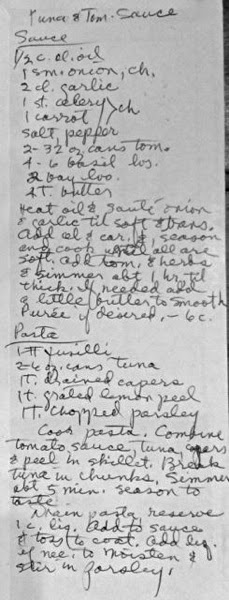 Tuna & Tom. Sauce
Sauce
1/2 c. ol. oil
1 sm. onion, ch.
2 cl. garlic
1 st. celery
1 carrot > ch
salt, pepper
2 - 32 oz cans tom.
4 - 6 basil lvs.
2 bay lvs.
2 T. butter
Heat oil & sauté onion
& garlic til soft & trans.
Add cel & car, season
and cook until all are
soft. Add tom. & herbs
& simmer abt 1 hr. til
thick. If needed add
a little butter to smooth
Purée if desired. - 6 c.
Pasta
1 # fusilli
2 - 6 oz. cans tuna
1 T. drained capers
1 t. grated lemon peel
1 T. chopped parsley
Cook pasta. Combine
tomato sauce, tuna, capers
& peel in skillet. Break
tuna in chunks. Simmer
abt 5 min. Season to
taste.
Drain pasta, reserve
1 c. liq. Add to sauce
& toss to coat. Add liq.
if nec. to moisten &
stir in parsley.